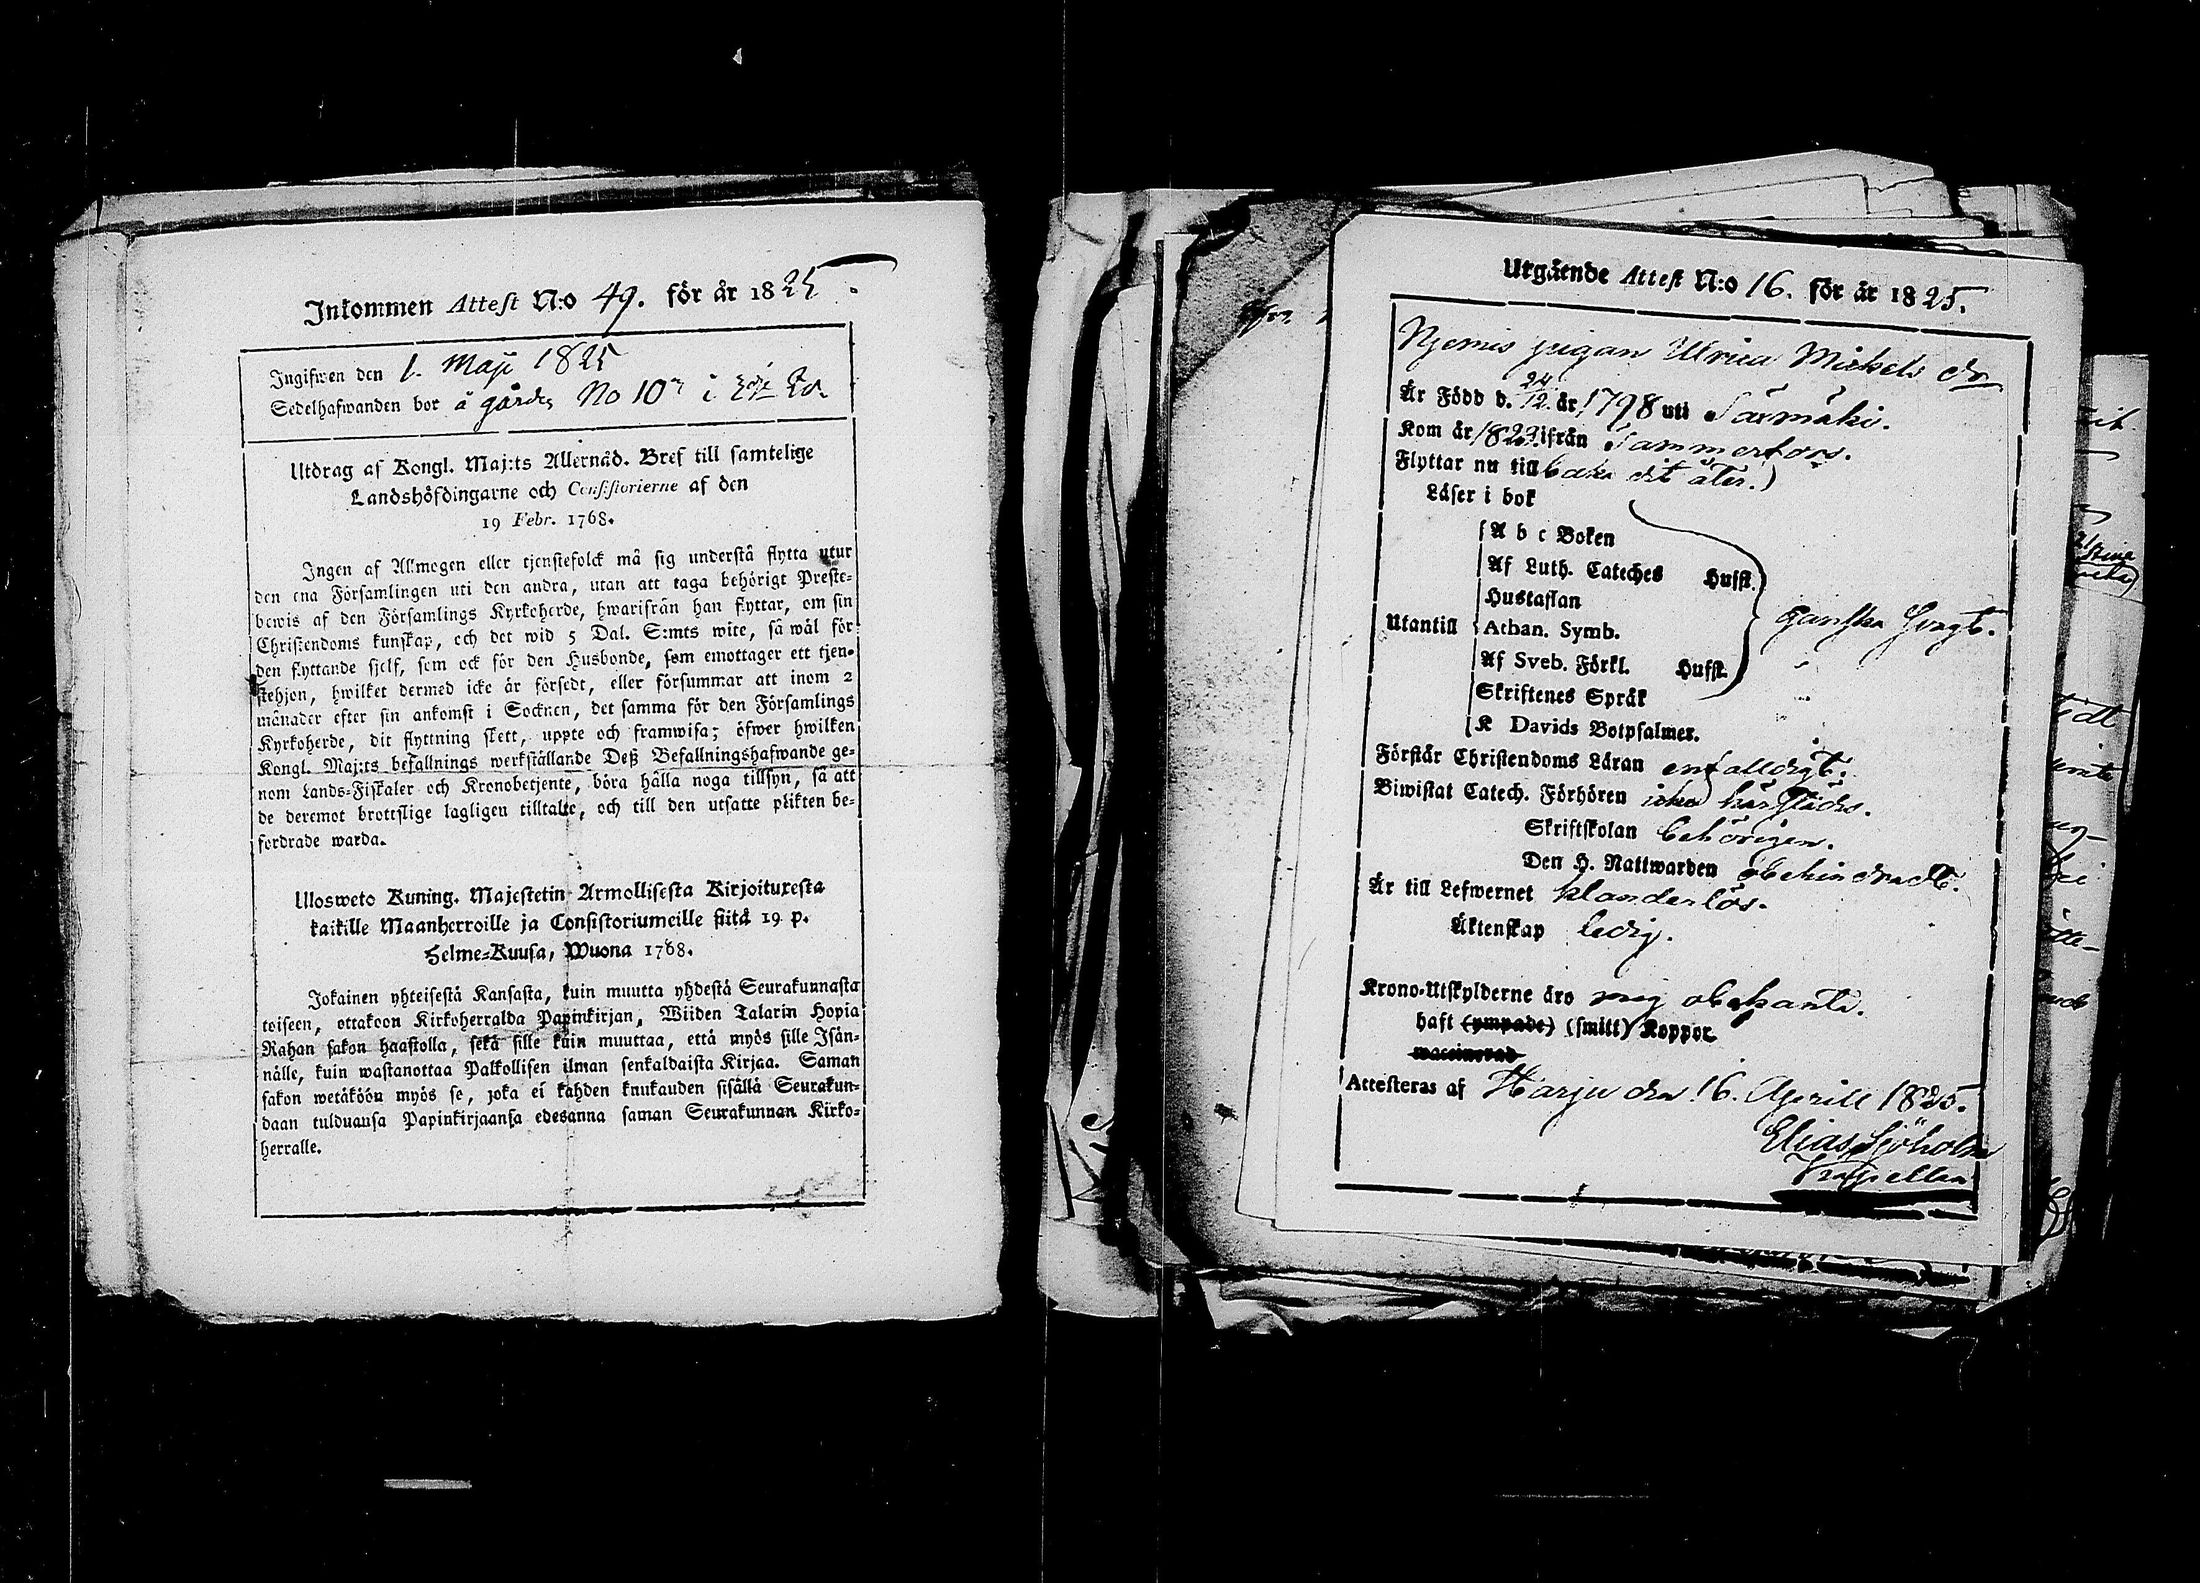 Inkommen Attest N:o 49. för år 1825.
Ingifwen den 1. Maji 1825
Sedelhafwanden bor å gården No 10 i
Utdrag af Kongl. Maj:ts Allernåd. Bref till samtelige
Landshöfdingarne och Consistorierne af den
19 Febr. 1768.
Ingen af Allmogen eller tjenstefolck må sig understå flytta utur
den ena Församlingen uti den andra, utan att taga behörigt Preste-
bewis af den Församlings Kyrkoherde, hwarifrån han flyttar, om sin
Christendoms kunskap, och det wid 5 Dal. S:mts wite, så wäl för
den flyttande sjelf, som ock för den Husbonde, som emottager ett tjen-
stehjon, hwilket dermed icke är försedt, eller försummar att inom 2
månader efter sin ankomst i Socknen, det samma för den Församlings
Kyrkoherde, dit flyttning skett, uppte och framwisa; öfwer hwilken
Kongl. Maj:ts befallnings werkställande Deß Befallningshafwande ge-
nom Lands-Fiskaler och Kronobetjente, böra hålla noga tillsyn, så att
de deremot brottslige lagligen tilltalte, och till den utsatte plikten be-
fordrade warda.
Ulosweto Kuning. Majestetin Armollisesta Kirjoituxesta
kaikille Maanherroille ja Consistoriumeille siitä 19 p.
Helme-Kuusa, Wuona 1768.
Jokainen yhteisestä Kansasta, kuin muutta yhdestä Seurakunnasta
toiseen, ottakoon Kirkoherralda Papinkirjan, Wiiden Talarin Hopia
Rahan sakon haastolla, sekä sille kuin muuttaa, että myös sille Isän-
nälle, kuin wastanottaa Palkollisen ilman senkaldaista Kirjaa. Saman
sakon wetäköön myös se, joka ei kahden kuukauden sisällä Seurakun-
daan tulduansa Papinkirjaansa edesanna saman Seurakunnan Kirko-
herralle.
Utgående Attest N:o 16. för år 1825.
Njemis pigan Ulrica Michels dr
Är Född d. 24/12. år 1798 uti Särmäki.
Kom år 1823. ifrån Tammerfors.
Flyttar nu tillbaka dit åter.)
Läser i bok
A b c Boken
Af Luth. Cateches Husfl.
Hustaflan
Utantill Athan. Symb. ganska svagt.
Af Sveb. Förkl. Husfl.
Skriftenes Språk
K Davids Botpsalmer.
Förstår Christendoms Läran enfalldigt.
Biwistat Catech. Förhören icke härstädes.
Skriftskolan behörigen.
Den H. Nattwarden obehindradt.
Är till Lefwernet klanderlös.
Äktenskap ledig.
Krono-Utskylderne äro mig obekante.
haft (ympade) (smitt) Koppor.
waccinerad
Attesteras af Harju den 16. Aprill 1825.
Elias Sjöholm
Kapellan